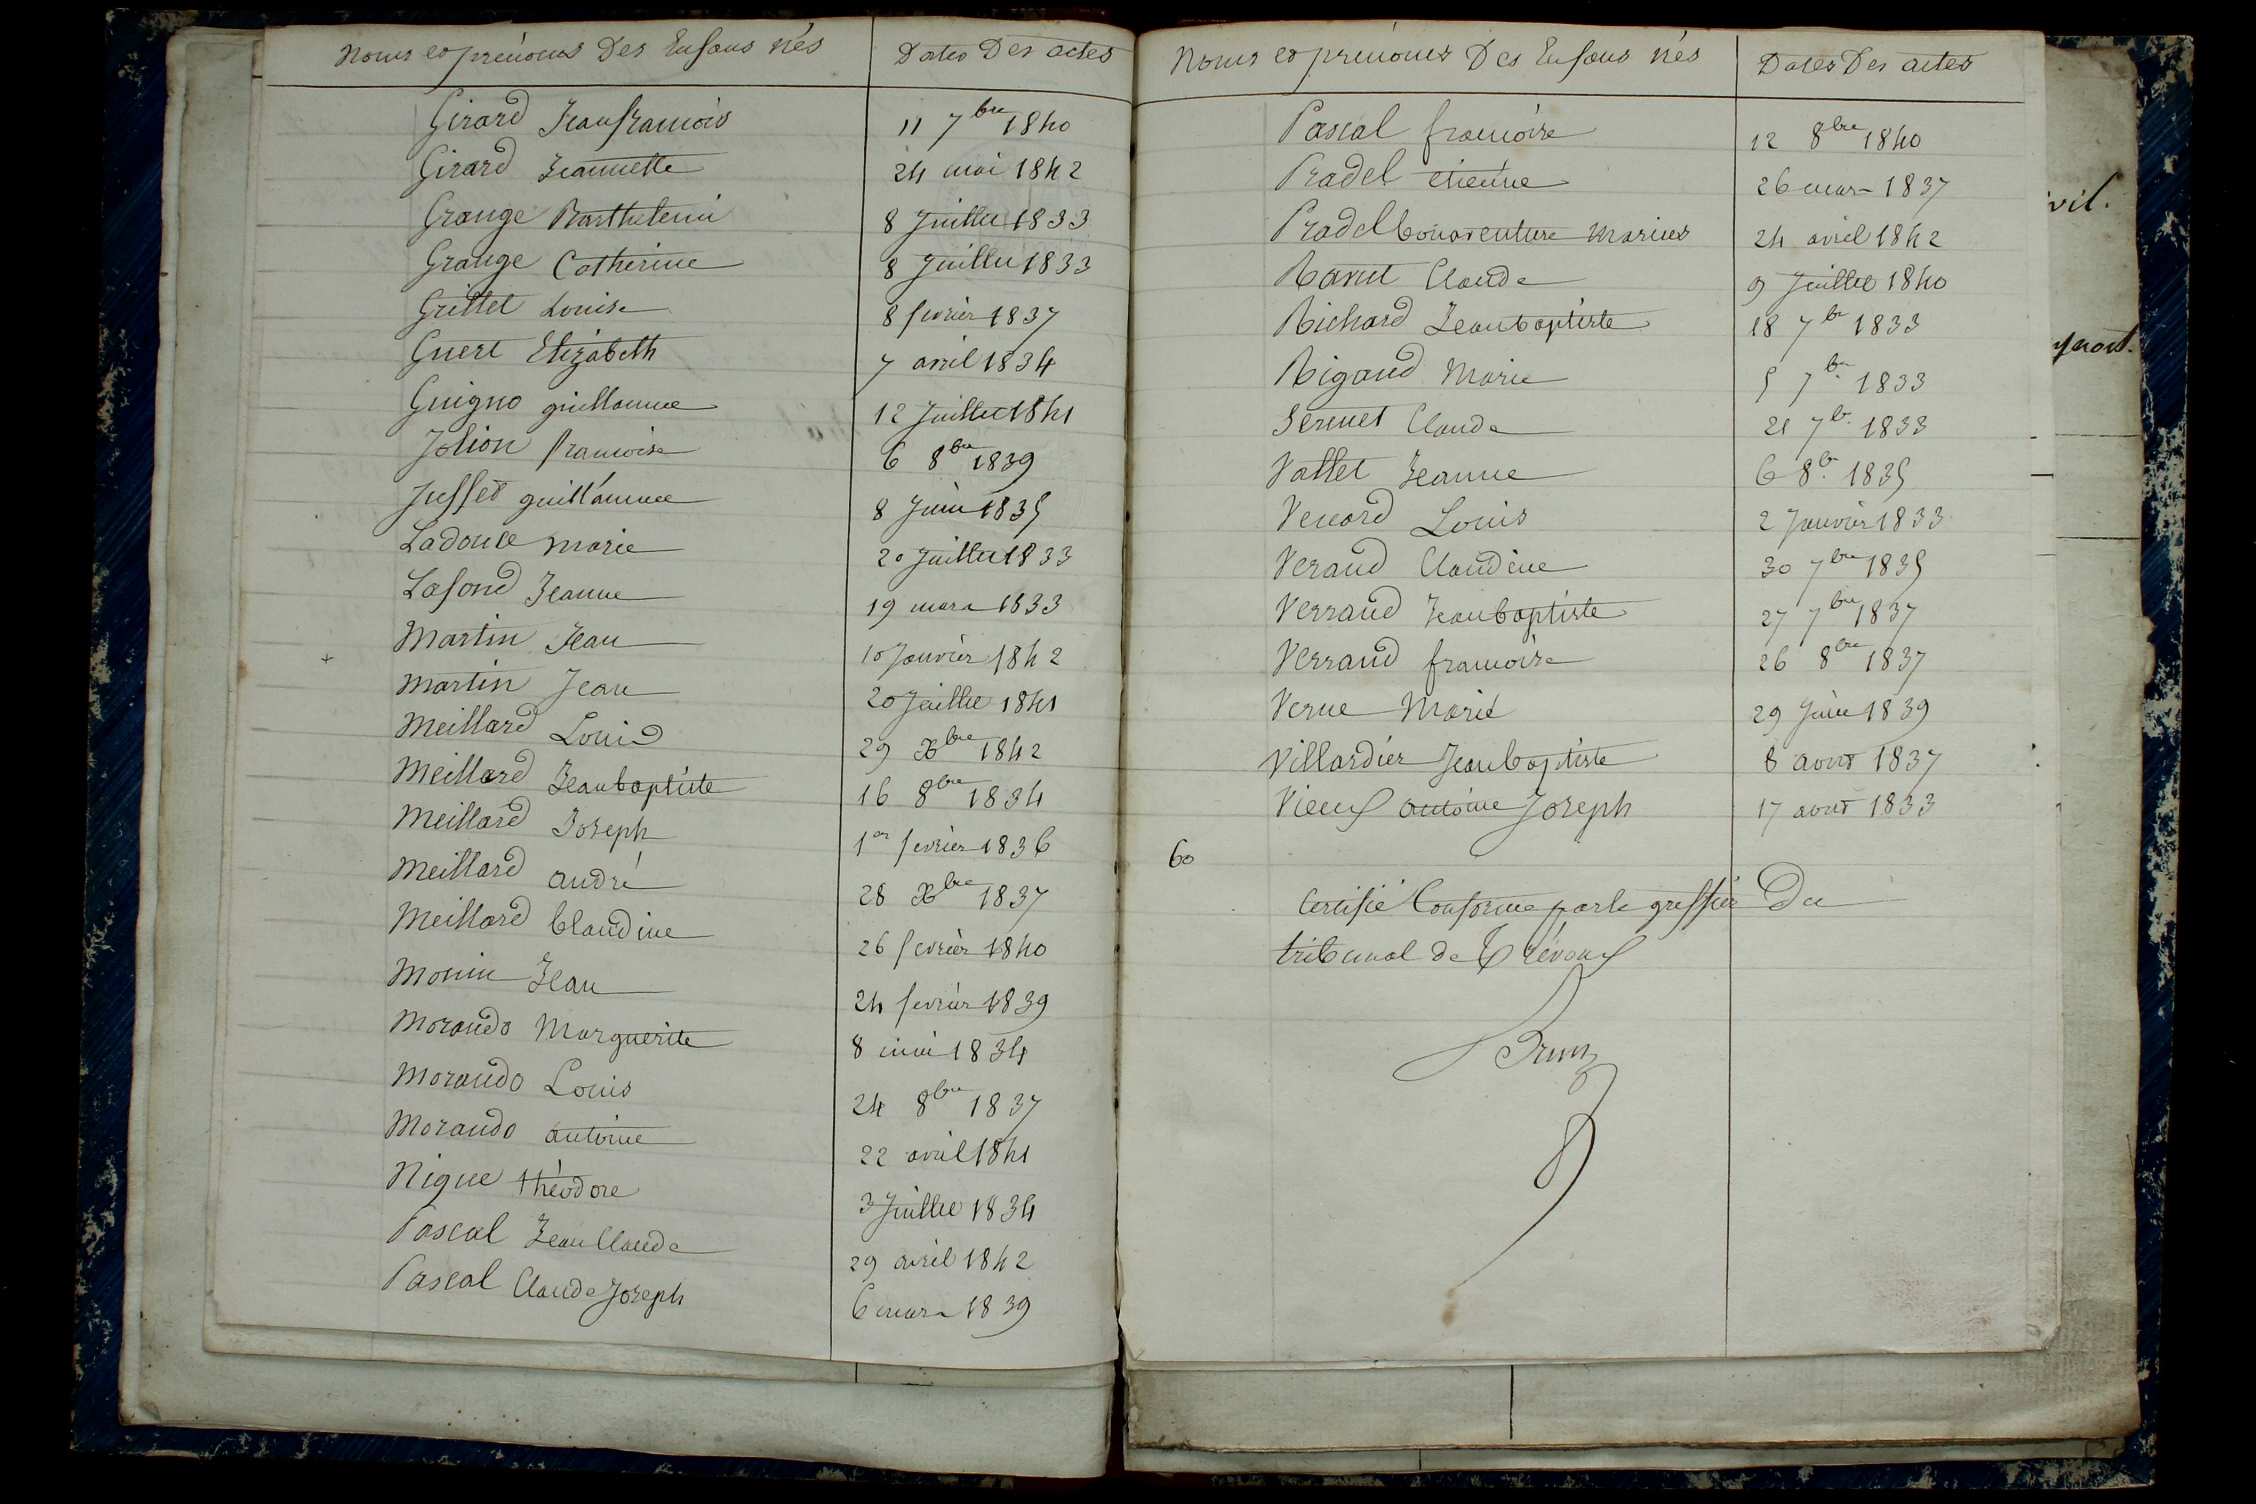 Noms et prénoms Des Enfans nés Dates Des actes
Girard Jean françois 11 7bre 1840
Girard Jeannette 24 mai 1842
Grange Barthelemi 8 Juillet 1833
Grange Catherine 8 Juillet 1833
Grillet Louise 8 fevrier 1837
Guert Elizabeth 7 avril 1834
Guigno guillaume 12 Juillet 1841
Jolion francoise 6 8bre 1839
Jusset guillaume 8 Juin 1835
Ladouce marie 20 Juillet 1833
Lafond Jeanne 19 mars 1833
Martin Jean 10 Janvier 1842
Martin Jean 20 Juillet 1841
Meillard Louis 29 Xbre 1842
Meillard Jean baptiste 16 8bre 1834
Meillard Joseph 1er fevrier 1836
Meillard andré 28 Xbre 1837
Meillard Claudine 26 fevrier 1840
Monin Jean 24 fevrier 1839
Morando Marguerite 8 mai 1834
Morando Louis 24 8bre 1837
Morando antoine 22 avril 1841
Nigue théodore 3 Juillet 1834
Pascal Jean Claude 29 avril 1842
Pascal Claude Joseph 6 mars 1839
Noms et prénoms Des Enfans nés Dates Des actes
Pascal francoise 12 8bre 1840
Pradel etienne 26 mars 1837
Pradel bonaventure marius 24 avril 1842
Ravut Claude 9 Juillet 1840
Richard Jean baptiste 18 7bre 1833
Rigaud Marie 5 7bre 1833
Sermet Claude 21 7bre 1833
Vallet Jeanne 6 8bre 1835
Venard Louis 2 Janvier 1833
Veraud Claudine 30 7bre 1835
Verraud Jean baptiste 27 7bre 1837
Verraud francoise 26 8bre 1837
Verne Marie 29 Juin 1839
Villardier Jean baptiste 8 aout 1837
Vieux antoine Joseph 17 aout 1833
60
Certifié Conforme par le greffier Du
tribunal de Trévoux
vil.